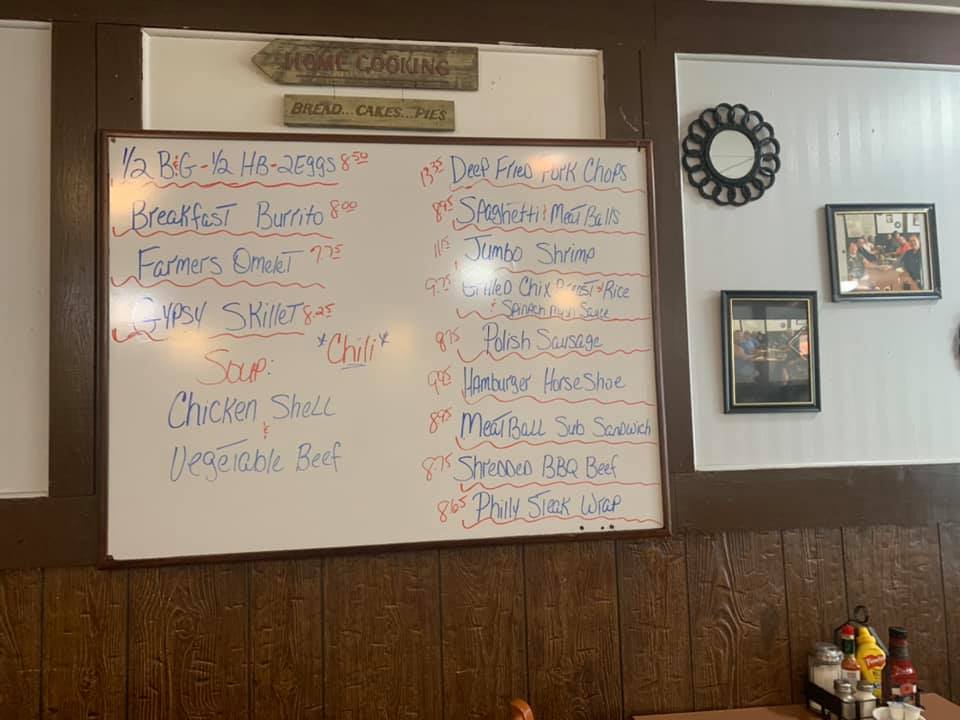 HOME COOKING
BREAD...CAKES...PIES
1/2 B&G - 1/2 HB - 2Eggs 8.50
Breakfast Burrito 8.00
Farmers Omelet 7.75
Gypsy Skillet 8.25
Soup: *Chili*
Chicken Shell
&
Vegetable Beef
13.25 Deep Fried Pork Chops
8.95 Spaghetti & Meat Balls
Jumbo Shrimp
9.75 Grilled Chix Breast & Rice
& Spinach Sauce
8.75 Polish Sausage
9.45 Hamburger Horse Shoe
8.95 Meat Ball Sub Sandwich
8.75 Shredded BBQ Beef
8.65 Philly Steak Wrap